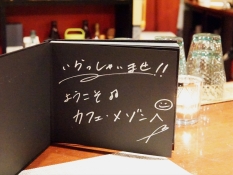 いらっしゃいませ!!
ようこそ
カフェ・メゾンへ